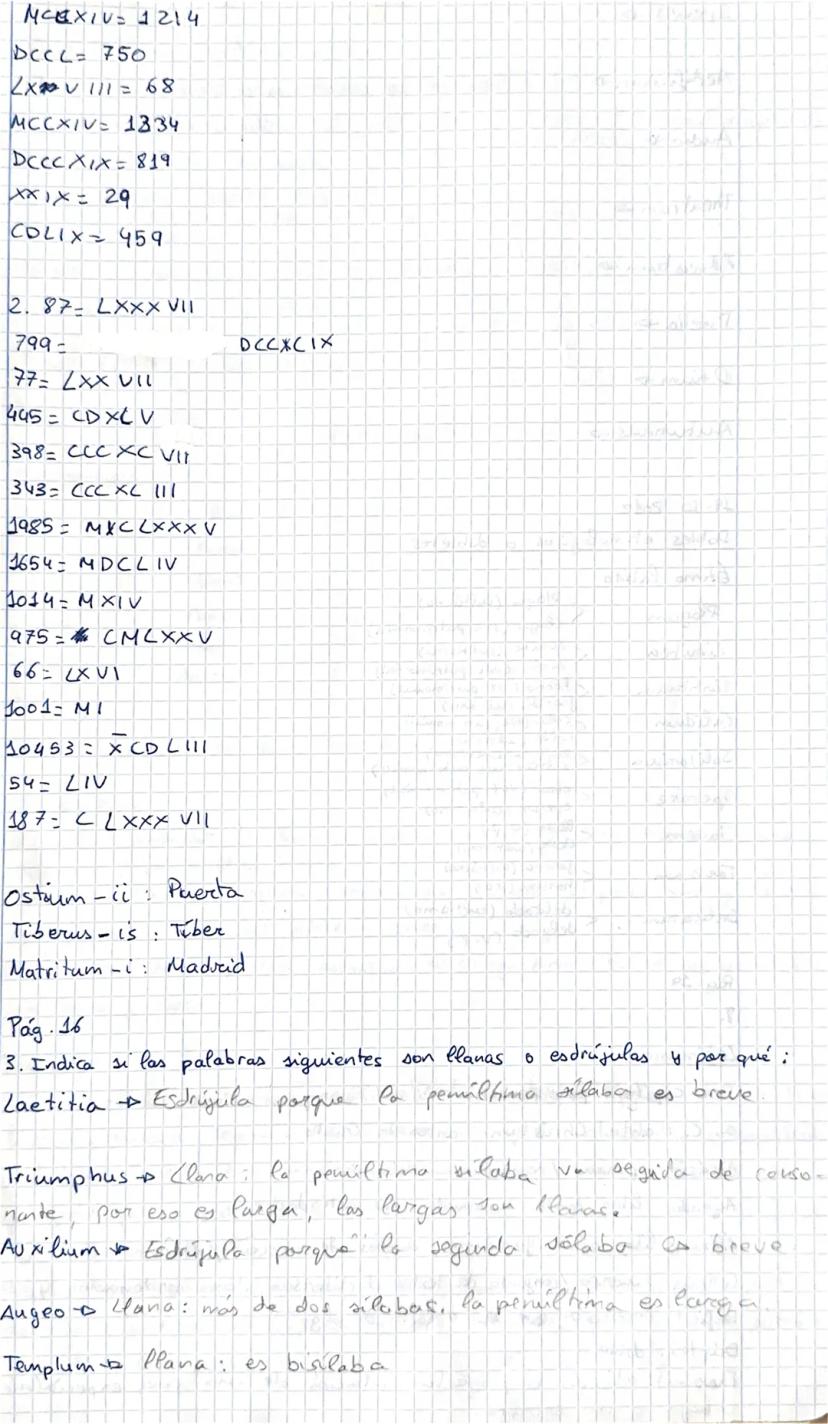 MCCXIV = 1214
DCCL = 750
LXVIII = 68
MCCXIV = 1334
DCCCXIX = 819
XXIX = 29
CDLIX = 459
2. 87 = LXXXVII
799 = DCCXCIX
77 = LXXVII
445 = CDXLV
398 = CCCXCVII
343 = CCCXLIII
1985 = MXCLXXXV
1654 = MDCLIV
1014 = MXIV
975 = CMLXXV
66 = LXVI
1001 = MI
10453 = X̅CDLIII
54 = LIV
187 = CLXXXVII
Ostium - ii : Puerta
Tiberus - is : Tíber
Matritum - i : Madrid
Pág. 16
3. Indica si las palabras siguientes son llanas o esdrújulas y por qué :
Laetitia → Esdrújula porque la penúltima sílaba es breve.
Triumphus → Llana : la penúltima sílaba va seguida de conso-
nante, por eso es larga, las largas son llanas.
Auxilium → Esdrújula porque la segunda sólaba es breve
Augeo → Llana : más de dos sílabas, la penúltima es larga.
Templum → llana : es bisílaba